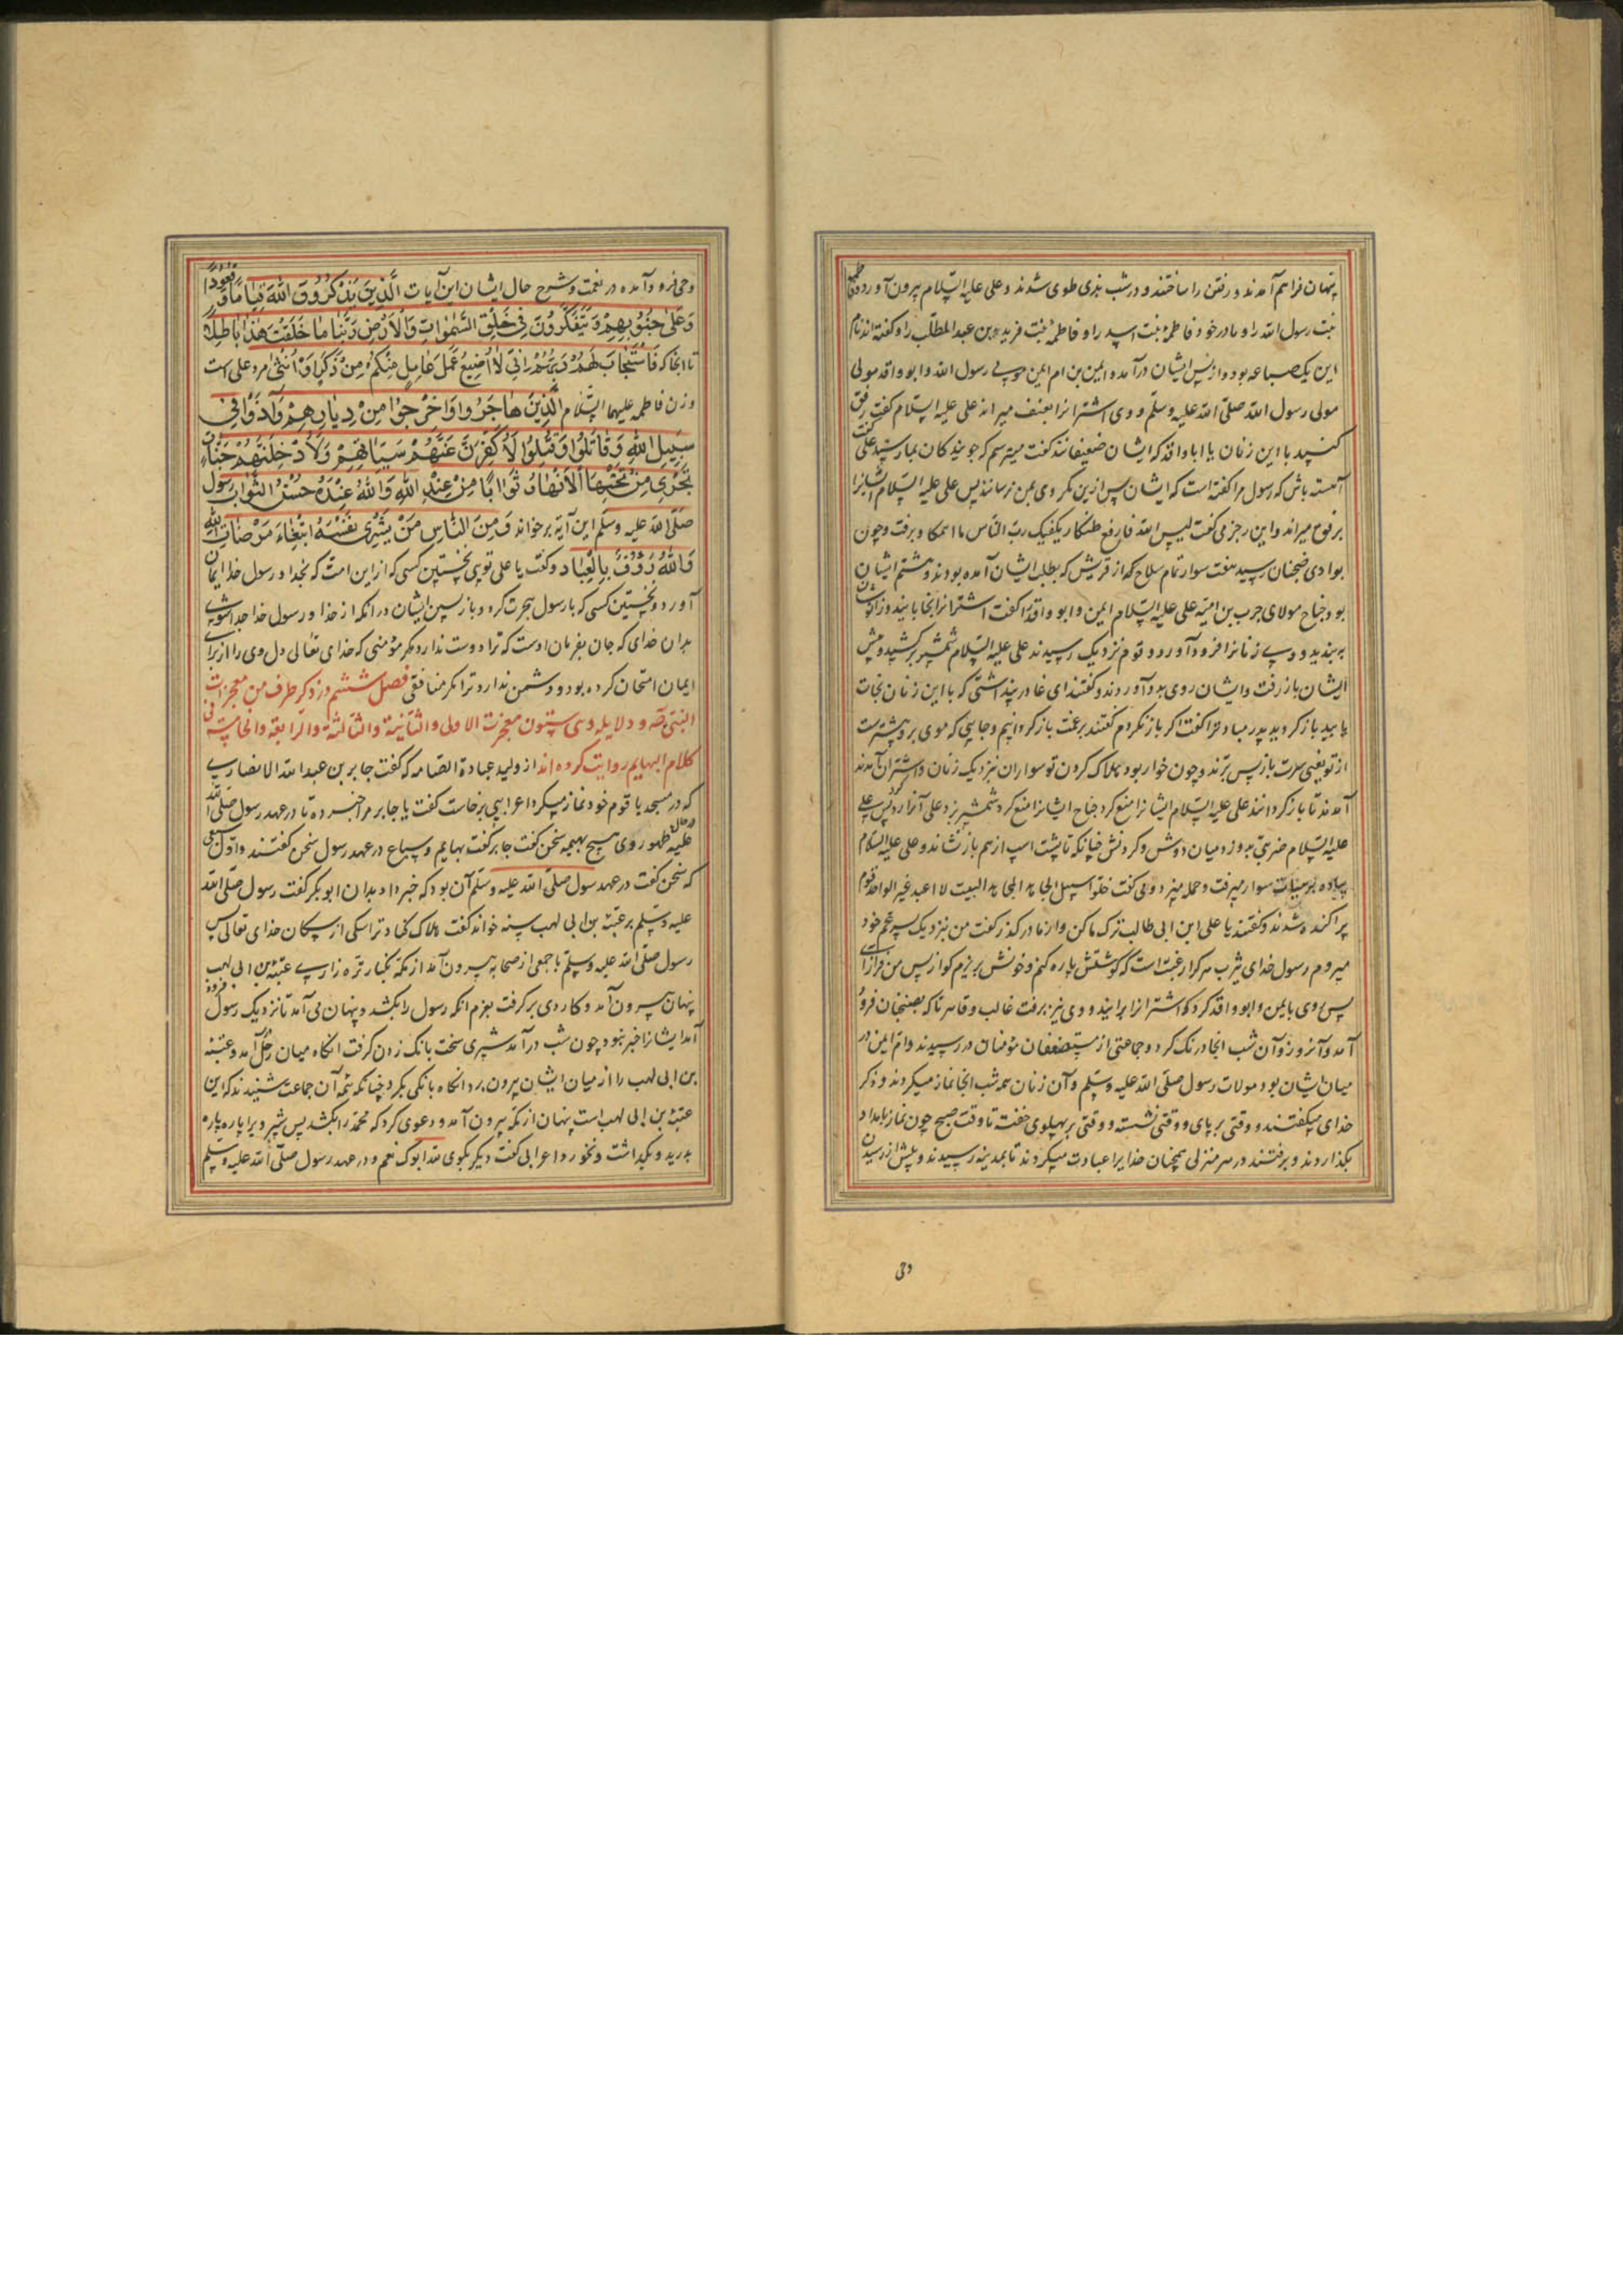 پنهان فراهم آمدند و رفتن را ساختند و در شب بذی طوی شدند و علی علیه السلام بیرون آورد فاطمه
بنت رسول الله را و مادر خود فاطمه بنت اسد را و فاطمه بنت زبیر بن عبد المطلب را و گفته اند نام
این یک ضباعه بود و از پس ایشان درآمد و ایمن بن ام ایمن مولی رسول الله و ابو واقد مولی
مولی رسول الله صلی الله علیه وسلم و وی اشترانرا بعنف میراند علی علیه السلام گفت رفق
کنید با این زنان یا ابا واقد که ایشان ضعیفانند گفت میترسم که جویندگان بما رسند علی گفت
آهسته باش که رسول مرا گفته است که ایشان پس ازین مکروهی بمن نرسانند پس علی علیه السلام اشترانرا
برفق میراند و این رجز می گفت لیس الله فارفع ظنکا یکفیک رب الناس ما اهمکا و برفت و چون
بوادی ضجنان رسید هفت سوار تمام سلاح که از قریش که بطلب ایشان آمده بودند و هشتم ایشان
بود جناح مولای حرب بن امیه علی علیه السلام ایمن و ابو واقد را گفت اشترانرا بخوابانید و زانوشان
ببندید و وی زنانرا فرود آورد و قوم نزدیک رسیدند علی علیه السلام شمشیر برکشید و پیش
ایشان باز رفت و ایشان روی بدو آوردند و گفتند ای غادر پنداشتی که با این زنان نجات
یابید باز گرد پدر مباد ترا گفت اگر باز نگردم گفتند برغمت باز گردانیم و جایی که موی بر و بیشترست
از تو یعنی سرت باز پس برند و چون خوار بود هلاک کردن تو سواران نزدیک زنان و اشتران آمدند
آمدند تا باز گردانند علی علیه السلام ایشانرا منع کرد جناح ایشانرا منع کرد شمشیر بزد علی آنرا رد کرد پس علی
علیه السلام ضربتی بدو زد میان دوش و گردنش چنانکه تا پشت اسپ از هم باز نشاند و علی علیه السلام
پیاده بر سیاقت سوار میرفت و حمله میبرد و می گفت خلوا سبیل الجاهد المجاهد البیت لا اعبد غیر الواحد قوم
پراکنده شدند و گفتند یا علی ابن ابی طالب ترک ما کن و از ما در گذر گفت من نزدیک پسر عم خود
میروم رسول خدای یثرب هر کرا رغبت است که گوشتش پاره کنم و خونش بریزم گو از پس من فراز آی
پس وی با ایمن و ابو واقد کرد که اشترانرا برانید و وی نیز برفت غالب و قاهر تا که بضجنان فرود
آمد و آنروز و آن شب آنجا درنگ کرد و جماعتی از مستضعفان مؤمنان در رسیدند و ام ایمن در
میان ایشان بود مولات رسول صلی الله علیه وسلم و آن زنان همه شب آنجا نماز میکردند و ذکر
خدای میگفتند و وقتی بر پای و وقتی نشسته و وقتی بر پهلوی خفته تا وقت صبح چون نماز بامداد
بگذاردند و برفتند در هر منزلی همچنان خدایرا عبادت میکردند تا بمدینه رسیدند و پیش از رسیدن
وحی
وحی فرو آمده در نعمت و شرح حال ایشان این آیات الَّذِینَ یَذْکُرُونَ اللهَ قِیَاماً وَقُعُوداً
وَعَلیٰ جُنُوبِهِمْ وَیَتَفَکَّرُونَ فِی خَلْقِ السَّمٰوَاتِ وَالْاَرْضِ رَبَّنَا مَا خَلَقْتَ هٰذَا بَاطِلاً
تا آنجا که فَاسْتَجَابَ لَهُمْ رَبُّهُمْ اَنِّی لَا اُضِیعُ عَمَلَ عَامِلٍ مِنْکُمْ مِنْ ذَکَرٍ اَوْ اُنْثیٰ مرد علی است
و زن فاطمه علیهما السلام الَّذِینَ هَاجَرُوا وَاُخْرِجُوا مِنْ دِیَارِهِمْ وَاُوذُوا فِی
سَبِیلِ اللهِ وَقَاتَلُوا وَقُتِلُوا لَاُکَفِّرَنَّ عَنْهُمْ سَیِّئَاتِهِمْ وَلَاُدْخِلَنَّهُمْ جَنَّاتٍ
تَجْرِی مِنْ تَحْتِهَا الْاَنْهَارُ ثَوَاباً مِنْ عِنْدِ اللهِ وَاللهُ عِنْدَهُ حُسْنُ الثَّوَابِ رسول
صلی الله علیه وسلم این آیه برخواند وَمِنَ النَّاسِ مَنْ یَشْرِی نَفْسَهُ ابْتِغَاءَ مَرْضَاتِ اللهِ
وَاللهُ رَؤُفٌ بِالْعِبَاد و گفت یا علی تویی نخستین کسی که از این امت که بخدا و رسول خدا ایمان
آورد و نخستین کسی که با رسول هجرت کرد و باز پسین ایشان در آنکه از خدا و رسول خدا جدا شوی
بدان خدای که جان بفرمان اوست که ترا دوست ندارد مگر مؤمنی که خدای تعالی دل وی را از برای
ایمان امتحان کرده بود و دشمن ندارد ترا مگر منافقی فصل ششم در ذکر طرف من معجزات
النبی ص و دلایله و سی ستون معجزت الاولی والثانیة والثالثة والرابعة والخامسة فی
کلام البهایم روایت کرده اند از ولید عبادة الصامه که گفت جابر بن عبد الله الانصاری
که در مسجد با قوم خود نماز میکرد اعرابیی برخاست گفت یا جابر مرا خبر ده تا در عهد رسول صلی الله
علیه در حال ظهور وی هیچ بهیمه سخن گفت جابر گفت بهایم و سباع در عهد رسول سخن گفتند و اول سبعی
که سخن گفت در عهد رسول صلی الله علیه وسلم آن بود که خبر داد بدان ابو بکر گفت رسول صلی الله
علیه وسلم بر عتبة بن ابی لهب بسنه خواند گفت هلاک کناد ترا سگی از سگان خدای تعالی پس
رسول صلی الله علیه وسلم با جمعی از صحابه بیرون آمد از مکه بکنار تره زاری عتبة بن ابی لهب
پنهان بیرون آمد و کاردی بر گرفت بعزم آنکه رسول را بکشد و پنهان می آمد تا نزدیک رسول فرود
آمد ایشانرا خبر نبود چون شب درآمد شیری سخت بانک زدن گرفت آنگاه میان رحل آمد و عتبه
بن ابی لهب را از میان ایشان بیرون برد آنگاه بانگی بکرد چنانکه همه آن جماعت شنیدند که این
عتبة بن ابی لهب است پنهان از مکه بیرون آمد و دعوی کرد که محمد را بکشد پس شیر ویرا پاره پاره
بدرید و بگذاشت و نخورد اعرابی گفت دیگر بگوی لله ابوک نعم و در عهد رسول صلی الله علیه وسلم